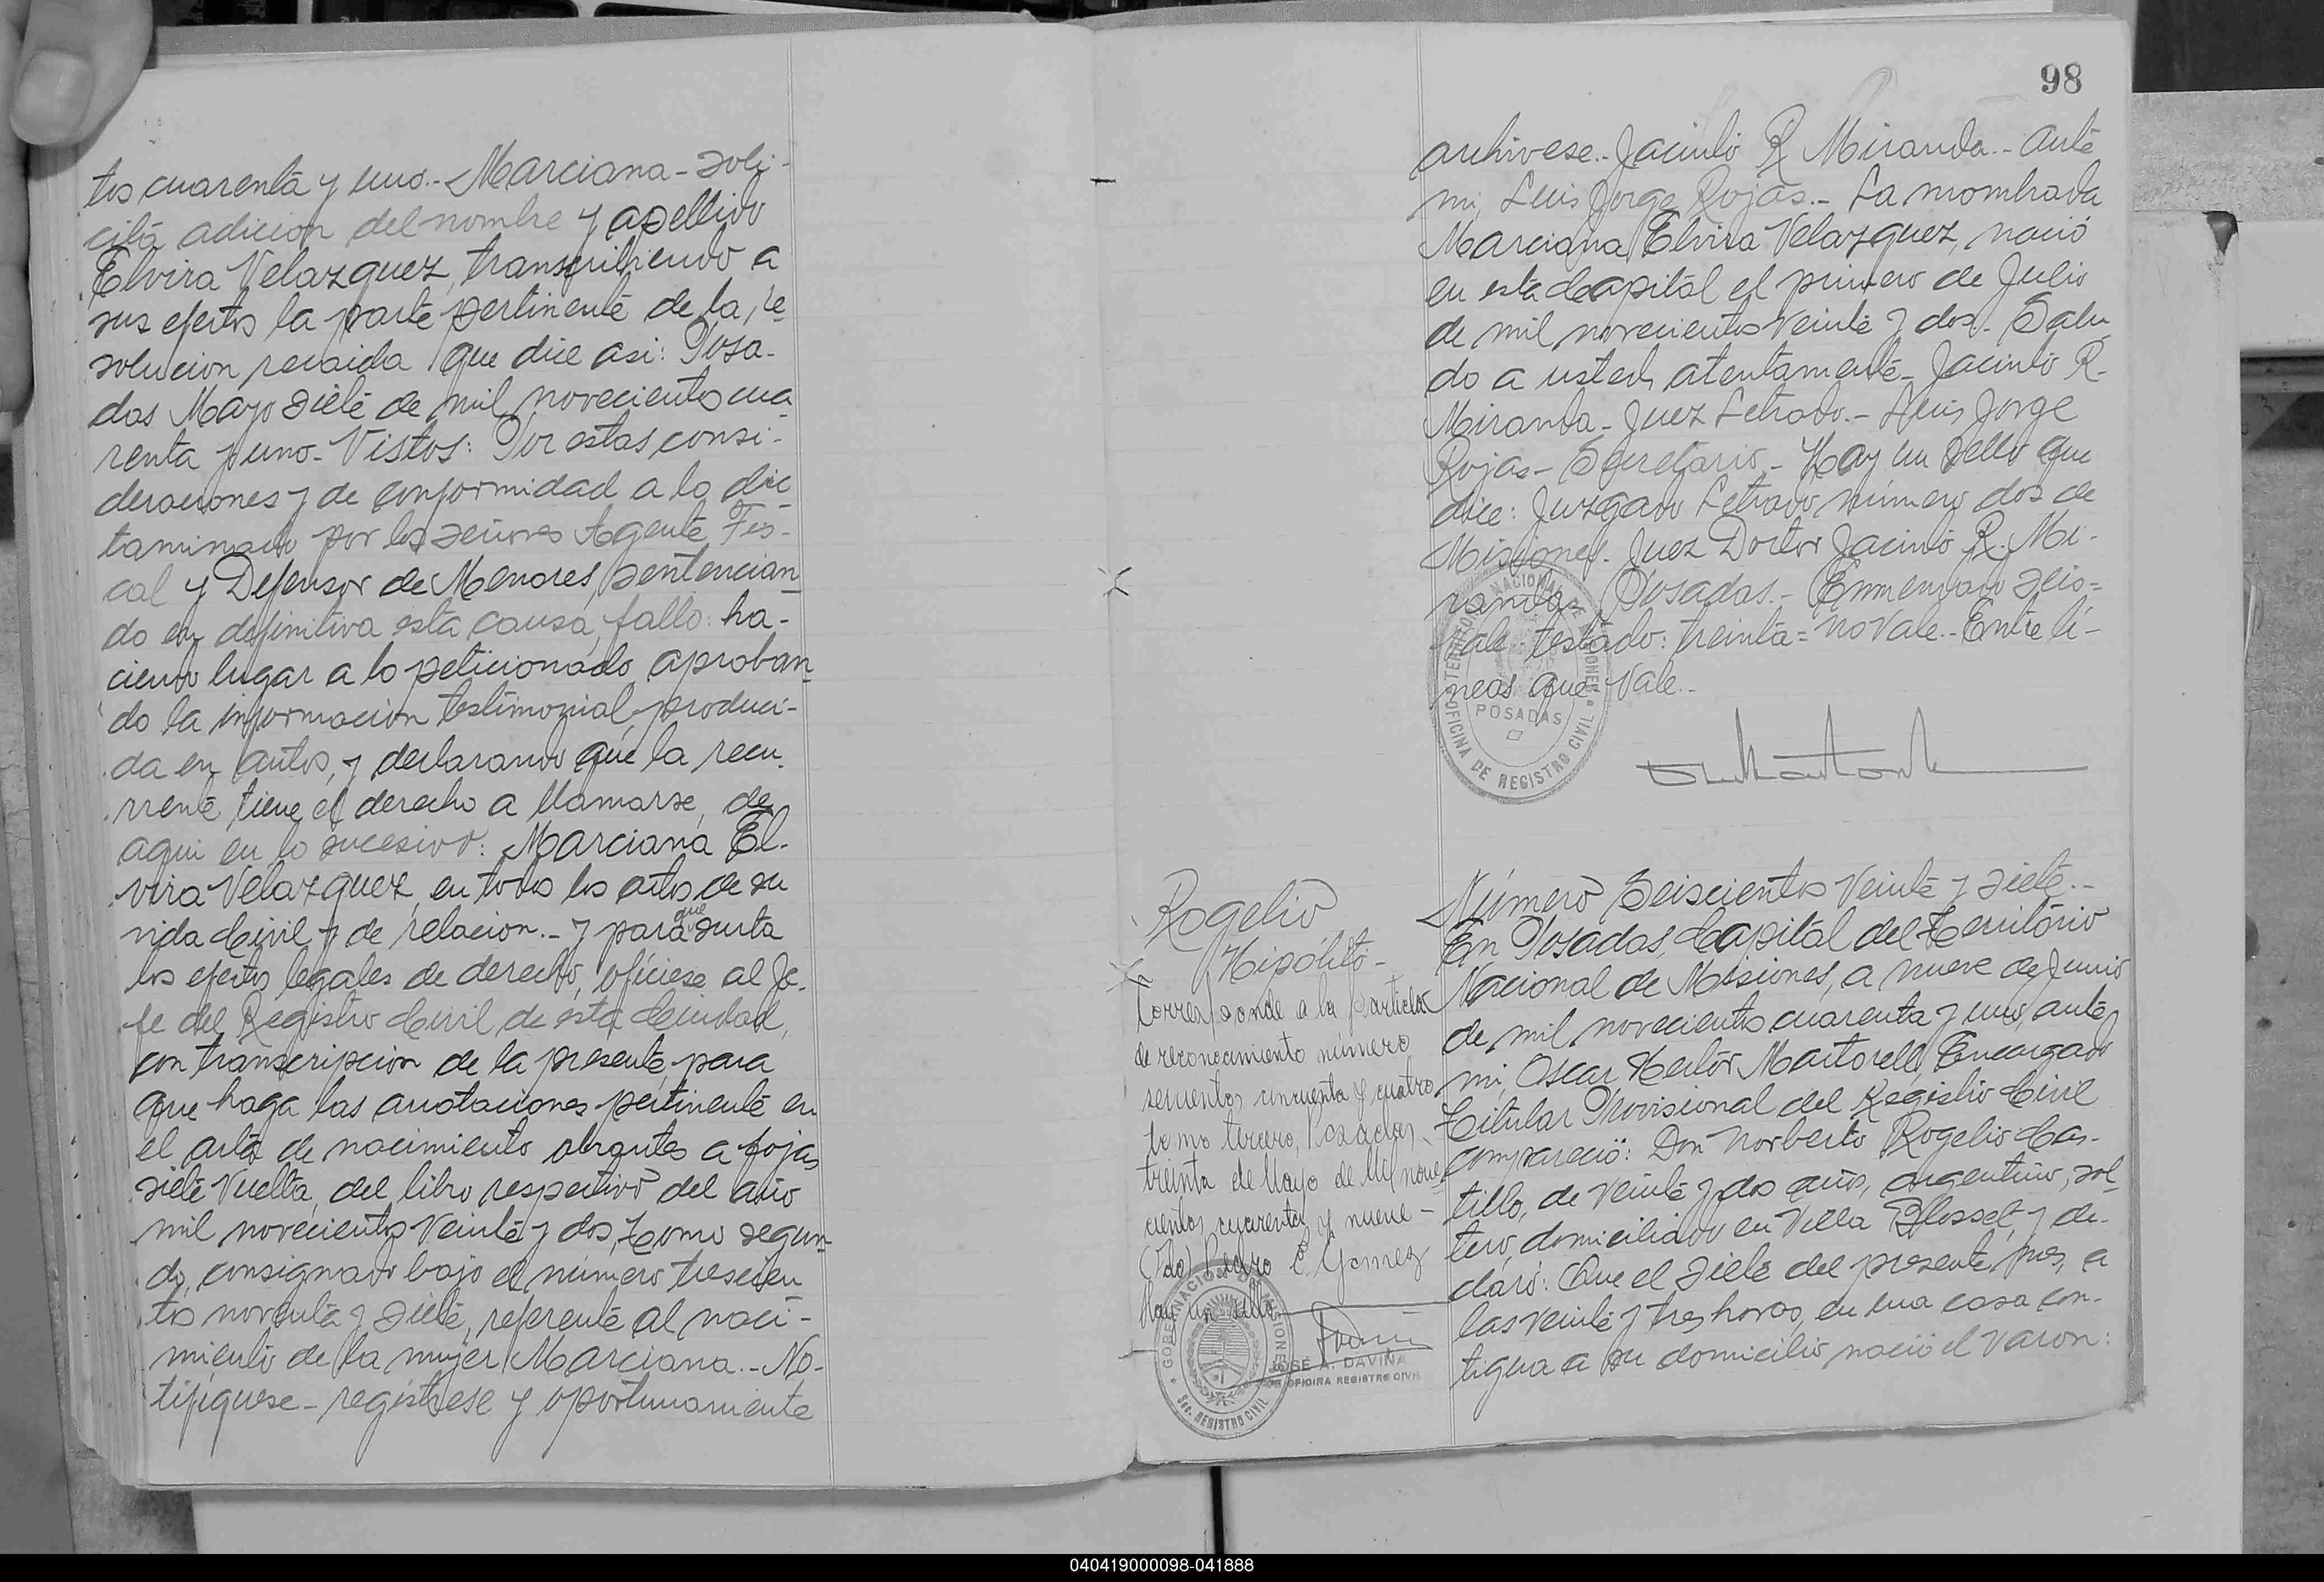 tos cuarenta y uno.- Marciana - soli-
cita adicion del nombre y apellido
Elvira Velazquez, transcribiendo a
sus efectos la parte pertinente de la re-
solucion recaida que dice asi: Posa-
das Mayo siete de mil novecientos cua-
renta y uno - Vistos: Por estas consi-
deraciones y de conformidad a lo dic-
taminado por los señores Agente Fis-
cal y Defensor de Menores, sentencian-
do en definitiva esta causa, fallo: ha-
ciendo lugar a lo peticionado, aproban-
do la informacion testimonial produci-
da en autos, y declarando que la recu-
rrente tiene el derecho a llamarse, de
aqui en lo sucesivo: Marciana El-
vira Velazquez, en todos los actos de su
vida Civil y de relacion.- y para que surta
los efectos legales de derecho, ofíciese al Je-
fe del Registro Civil de esta Ciudad,
con transcripcion de la presente, para
que haga las anotaciones pertinente en
el acta de nacimiento obrantes a fojas
siete Vuelta, del libro respectivo del año
mil novecientos Veinte y dos, tomo segun-
do, consignado bajo el número trescien-
tos noventa y siete, referente al naci-
miento de la mujer Marciana.- No-
tifíquese - regístrese y oportunamente
98
archívese.- Jacinto R Miranda.- Ante
mi, Luis Jorge Rojas.- La nombrada
Marciana Elvira Velazquez, nació
en esta Capital el primero de Julio
de mil novecientos Veinte y dos.- Salu
do a usted, atentamente - Jacinto R.
Miranda - Juez Letrado.- Luis Jorge
Rojas - Secretario - Hay un sello que
dice: Juzgado Letrado número dos de
Misiones. Juez Doctor Jacinto R. Mi-
randa - Posadas.- Enmendado seis=
Vale testado: treinta = no Vale.- Entre lí-
neas que Vale.-
POSADAS
OFICINA DE REGISTRO CIVIL
Rogelio
Hipólito -
Corresponde a la partida
de reconocimiento número
cincuenta y cuatro
tomo tercero, Posadas,
treinta de Mayo de Mil nove-
cientos cuarenta y nueve -
(Fdo) Pedro E. Gomez
Hay un sello
GOBERNACION DE MISIONES
SEC. REGISTRO CIVIL
JOSÉ A. DAVIÑA
OFICINA REGISTRO CIVIL
Número Seiscientos Veinte y siete.-
En Posadas, Capital del Territorio
Nacional de Misiones, a nueve de Junio
de mil novecientos cuarenta y uno, ante
mi, Oscar Hector Martorell, Encargado
Titular Provisional del Registro Civil
compareció: Don Norberto Rogelio Cas-
tillo, de Veinte y dos años, argentino, sol-
tero, domiciliado en Villa Blosset, y de-
claró: Que el siete del presente mes, a
las veinte y tres horas, en una casa con-
tigua a su domicilio nació el Varon:
040419000098-041888